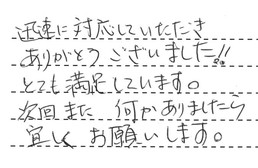 迅速に対応していただき
ありがとうございました!!
とても満足しています。
次回また 何かありましたら
宜しく お願いします。